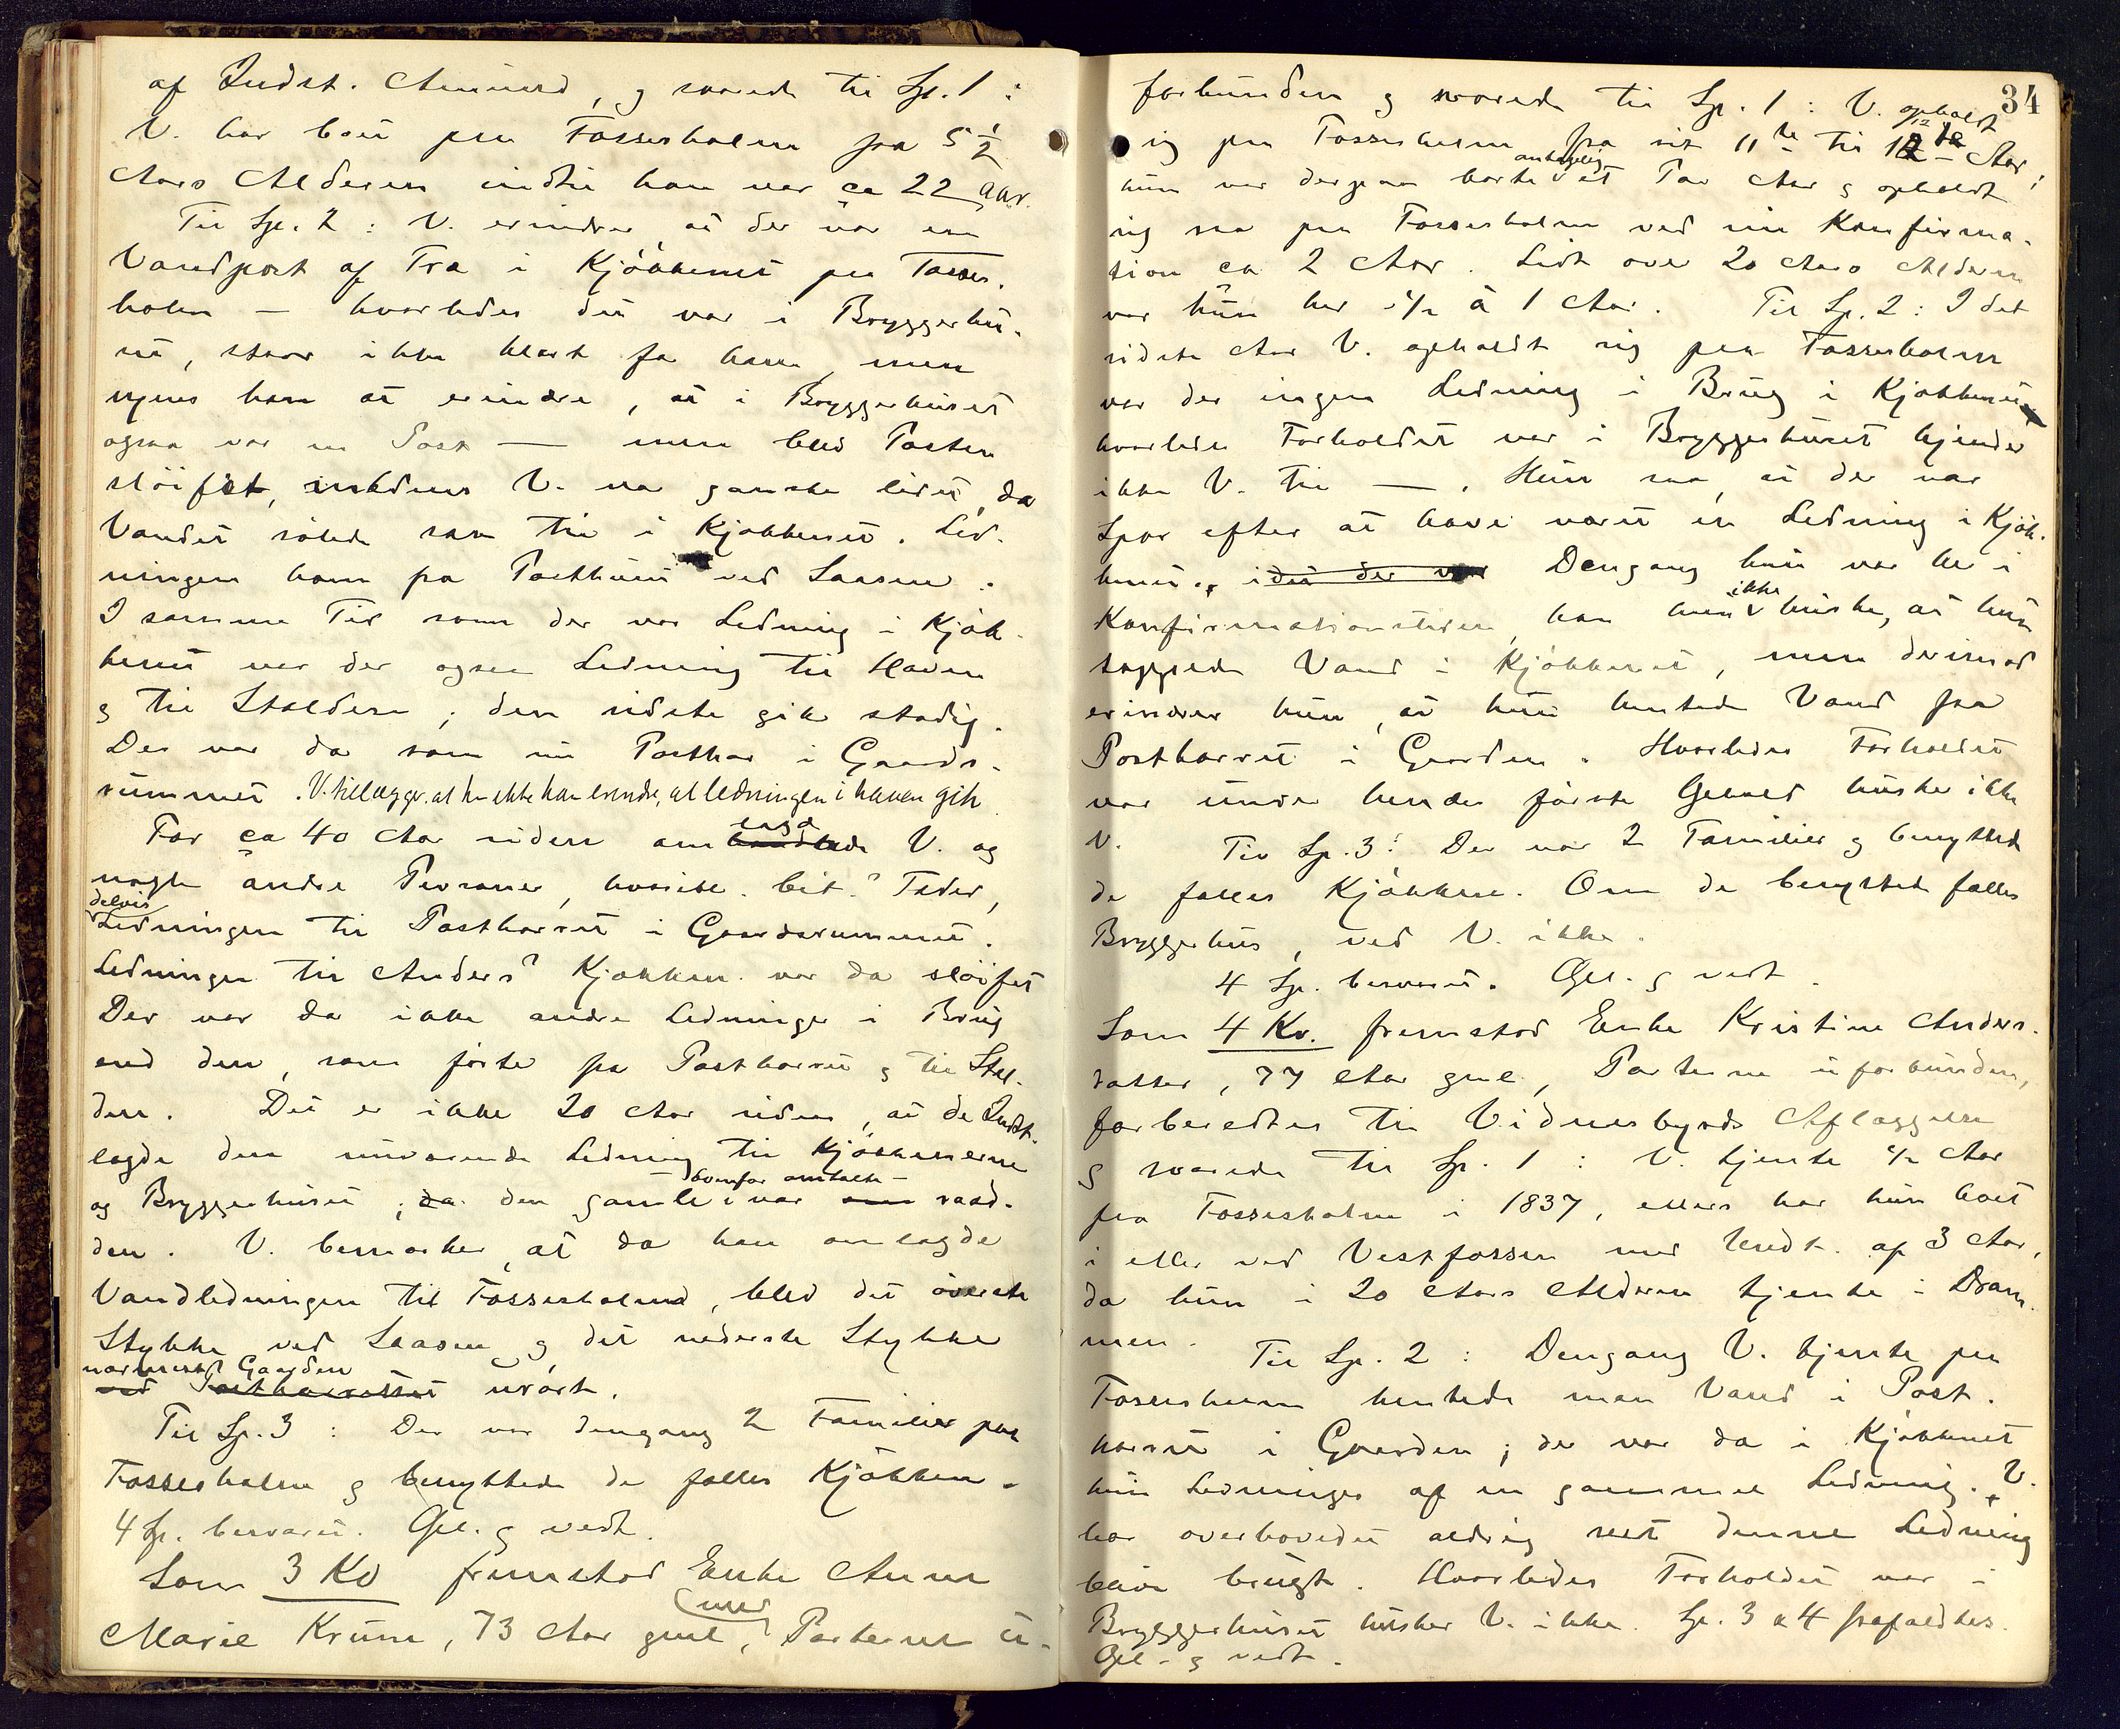 af Indst. Amund, og svarede til Sp. 1:
V. har boet paa Fossesholm fra 5½
Aars Alderen indtil han var ca 22 Aar.
Til Sp. 2: V. erindrer, at der var en
Vandpost af Træ i Kjøkkenet paa Fosses-
holm — hvorledes det var i Bryggerhu-
set, staar ikke klart for ham, men
synes han at erindre, at i Bryggerhuset
ogsaa var en Post — men blev Posten
sløifet, medens V. var ganske liden, da
Vandet sølede saa til i Kjøkkenet. Led-
ningen kom fra Posthuset ved Laasen.
I samme Tid som der var Ledning i Kjøk-
kenet var der ogsaa Ledning til Haven
og til Stalden; den sidste gik stadig.
Der var da som nu Postkar i Gaards-
rummet. V. tillægger, at han ikke kan erindre, at ledningen i haven gik
For ca 40 Aar siden omlagde V. og
nogle andre Personer, hvoribl. Cit.s Fader,
delvis
Ledningen til Postkarret i Gaardsrummet.
Ledningen til Anders' Kjøkken var da sløifet
Der var da ikke andre Ledninger i Brug
end den, som førte fra Postkarret og til Stal-
den. Det er ikke 20 Aar siden, at de Indst.
lagde den nuværende Ledning til Kjøkkenerne
og Bryggerhuset; da den gamle – ovenfor omtalte – var raad-
den. V. bemærker, at da han omlagde
Vandledningen til Fossesholm, blev det øverste
Stykke ved Laasen og det nederste Stykke
nærmest Gaarden
ved Postkarret urørt.
Til Sp. 3: Der var dengang 2 Familier paa
Fossesholm og benyttede de fælles Kjøkken.
4 Sp. besvaret. Opl. og vedt.
Som 3 Kv. fremstod Enke Anne
Marie Krum, 73 Aar gml, med Parterne u-
34
forbunden og svarede til Sp. 1: V. opholdt
sig paa Fossesholm fra sit 11te til 12te Aar;
hun var derpaa borte antagelig et Par Aar og opholdt
sig saa paa Fossesholm ved sin Konfirma-
sion ca 2 Aar. Lidt over 20 Aars Alderen
var hun her ½ à 1 Aar. Til Sp. 2: I det
sidste Aar V. opholdt sig paa Fossesholm
var der ingen Ledning i Brug i Kjøkkenet
hvorledes Forholdet var i Bryggerhuset kjender
ikke V. til —. Hun saa, at der var
Spor efter at have været en Ledning i Kjøk-
kenet, idet der var Dengang hun var her i
Konfirmationstiden, kan hun ikke huske, at hun
tappede Vand i Kjøkkenet, men derimod
erindrer hun, at hun hentede Vand fra
Postkarret i Gaarden. Hvorledes Forholdet
var under hendes første Ophold husker ikke
V. Til Sp. 3: Der var 2 Familier og benyttede
de fælles Kjøkken. Om de benyttede fælles
Bryggerhus, ved V. ikke.
4 Sp. besvaret. Opl. og vedt.
Som 4 Kv. fremstod Enke Kristine Anders-
datter, 77 Aar gml, Parterne uforbunden,
forberedtes til Vidnesbyrds Aflæggelse
og svarede til Sp. 1: V. tjente ½ Aar
paa Fossesholm i 1837, ellers har hun boet
i eller ved Vestfossen med Undt. af 3 Aar,
da hun i 20 Aars Alderen tjente i Dram-
men. Til Sp. 2: Dengang V. tjente paa
Fossesholm hentede man Vand i Post-
karret i Gaarden; der var da i Kjøkkenet
kun Levninger af en gammel Ledning. V.
har overhovedet aldrig seet denne Ledning
blive brugt. Hvorledes Forholdet var i
Bryggerhuset husker V. ikke. Sp. 3 & 4 frafaldtes.
Opl. og vedt.